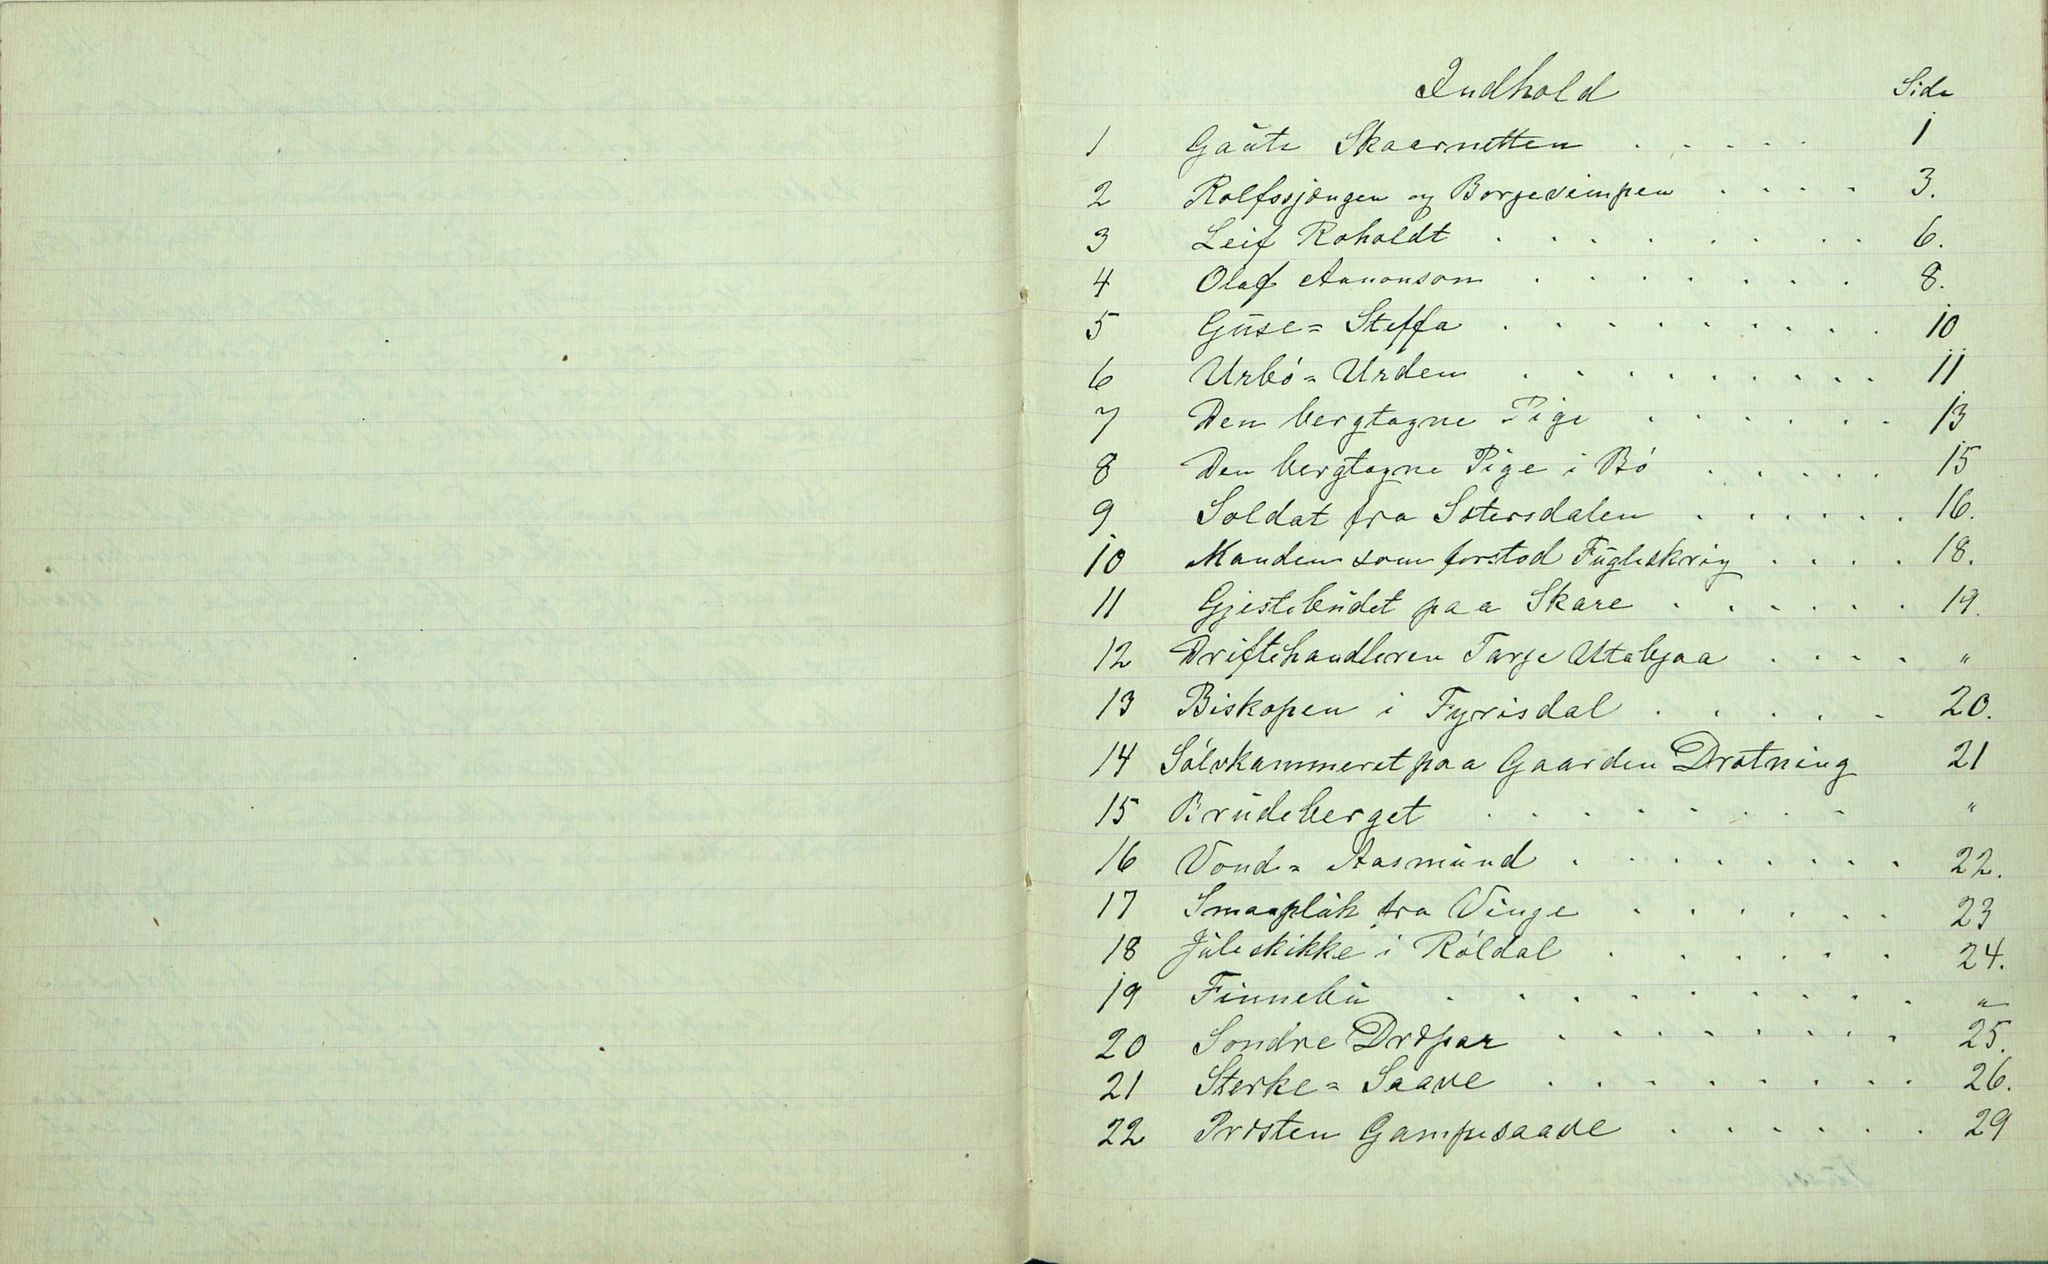 Indhold Side
1 Gaute Skaarnetten . . . . . 1
2 Rolfssjøngen og Borgevimpen . . . . 3.
3 Leif Roholdt . . . . . . . . . 6.
4 Olaf Aanonson . . . . . . . 8.
5 Guse= Steffa . . . . . . . . . 10
6 Urbó= Urden . . . . . . . . . 11
7 Den bergtagne Pige . . . . . . 13
8 Den bergtagne Pige i Bó . . . . . 15
9 Soldat fra Setersdalen . . . . . . 16.
10 Manden som forstod Fugleskrig . . . . 18.
11 Gjestebudet paa Skare . . . . . . 19.
12 Driftehandleren Tarje Attabjaa . . . . "
13 Biskopen i Fyrisdal . . . . . 20.
14 Sólvkammeret paa Gaarden Drotning 21
15 Brudeberget . . . . . . . . "
16 Vond= Aasmund . . . . . . . . 22.
17 Smaaplük fra Vinge . . . . . . 23
18 Juleskikke i Róldal . . . . . . 24.
19 Finnebu . . . . . . . . . "
20 Sondre Dræpar . . . . . . . . 25.
21 Sterke= Saave . . . . . . . . . 26.
22 Presten Gampesaave . . . . . . 29